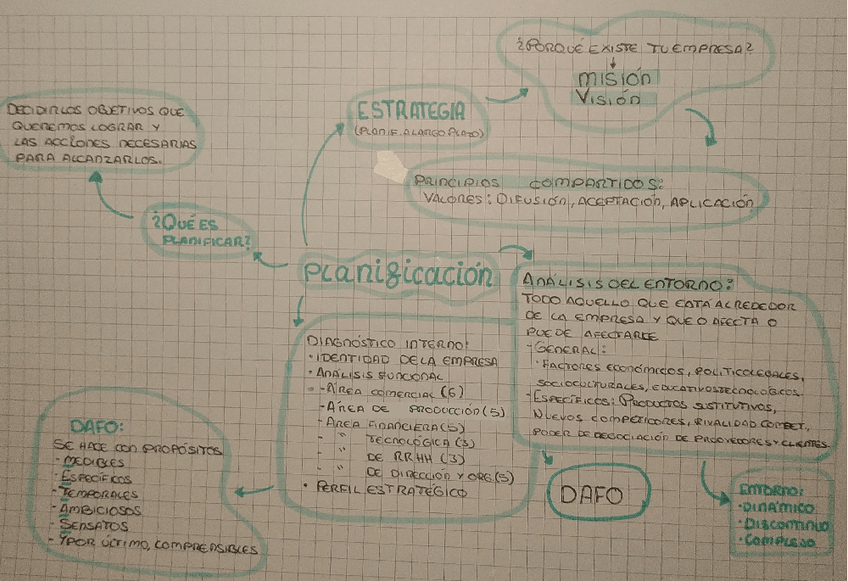 ¿PORQUÉ EXISTE TU EMPRESA?
misión
Visión
ESTRATEGIA
(PLANIF. A LARGO PLAZO)
DECIDIR LOS OBJETIVOS QUE
QUEREMOS LOGRAR Y
LAS ACCIONES NECESARIAS
PARA ALCANZARLOS.
PRINCIPIOS COMPARTIDOS:
VALORES: DIFUSIÓN, ACEPTACIÓN, APLICACIÓN
¿QUÉ ES
PLANIFICAR?
Planificación
ANÁLISIS DEL ENTORNO:
TODO AQUELLO QUE ESTÁ ALREDEDOR
DE LA EMPRESA Y QUE O AFECTA O
PUEDE AFECTARLE
-GENERAL:
·FACTORES ECONÓMICOS, POLITICOLEGALES,
SOCIOCULTURALES, EDUCATIVOSTECNOLOGICOS.
-ESPECÍFICOS: PRODUCTOS SUSTITUTIVOS,
NUEVOS COMPETIDORES, RIVALIDAD COMPET,
PODER DE NEGOCIACIÓN DE PROOVEDORES Y CLIENTES.
DIAGNÓSTICO INTERNO:
·IDENTIDAD DE LA EMPRESA
·ANÁLISIS FUNCIONAL
-ÁREA COMERCIAL (6)
-ÁREA DE PRODUCCIÓN (5)
-AREA FINANCIERA (5)
- " TECNOLÓGICA (3)
- " DE RRHH (3)
- " DE DIRECCIÓN Y ORG (5)
· PERFIL ESTRATÉGICO
DAFO:
SE HACE CON PROPÓSITOS
-MEDIBLES
-ESPECÍFICOS
-TEMPORALES
-AMBICIOSOS
-SENSATOS
-Y POR ÚLTIMO, COMPRENSIBLES
DAFO
ENTORNO:
·DINÁMICO
·DISCONTINUO
·COMPLEJO